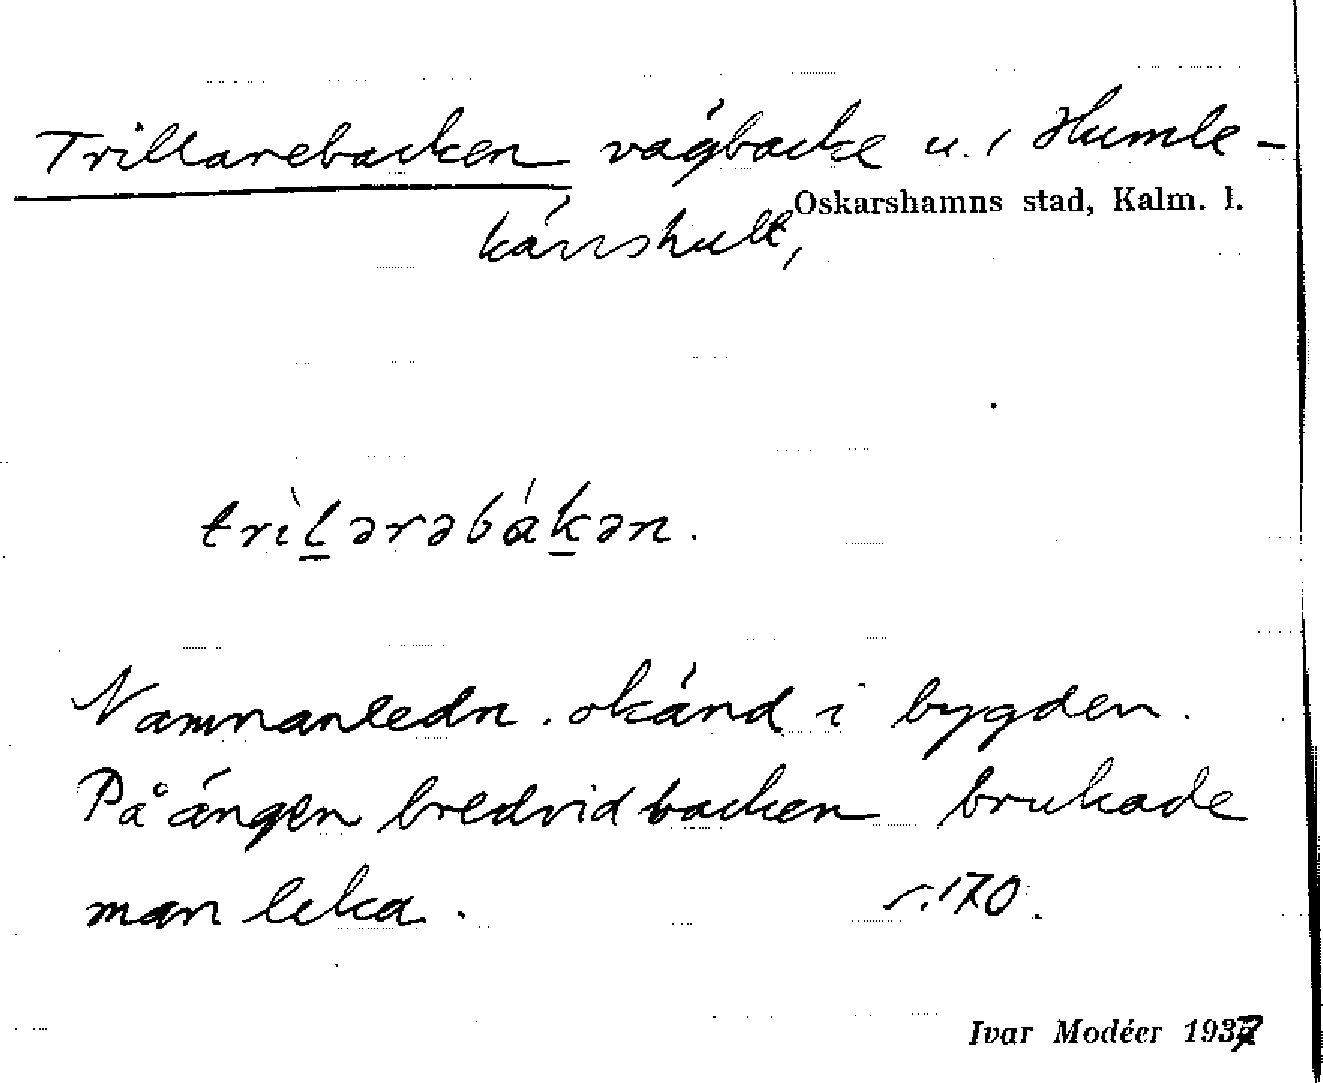 Trillarebacken vägbacke u. / Humle-
Oskarshamns stad, Kalm. l.
kärrshult,
trìl̲ərəbák̲ən.
Namnanledn. okänd i bygden.
På ängen bredvid backen brukade
man leka. s. 170.
Ivar Modéer 1937